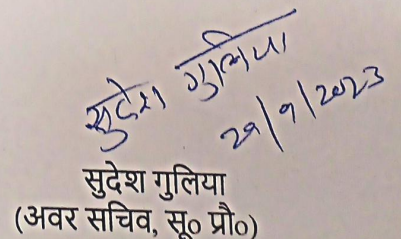 सुदेश गुलिया
29/9/2023
सुदेश गुलिया
(अवर सचिव, सू० प्रौ०)